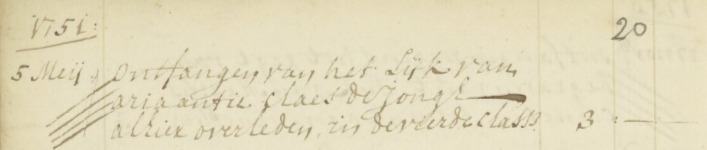 1751:
20
5 Meij ontfangen van het Lijk van
ariaantie Claes de Jong
alhier overleden, in de vierde Class 3 :-